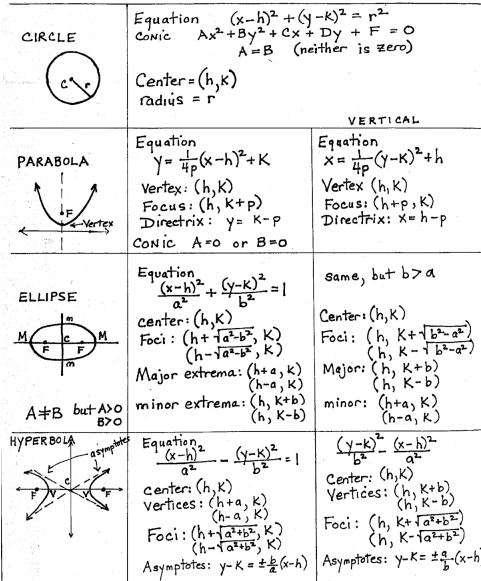 CIRCLE
C r
Equation (x-h)² + (y-k)² = r²
CONIC Ax² + By² + Cx + Dy + F = 0
A=B (neither is zero)
Center = (h,K)
radius = r
VERTICAL
PARABOLA
F
Vertex
Equation
y = 1/4p (x-h)² + K
Vertex: (h,K)
Focus: (h, K+p)
Directrix: y= K-p
CONIC A=0 or B=0
Equation
x = 1/4p (y-K)² + h
Vertex (h,K)
Focus: (h+p, K)
Directrix: x= h-p
ELLIPSE
m
M C M
F F
m
A≠B but A>0
B>0
Equation
(x-h)²/a² + (y-K)²/b² = 1
center: (h,K)
Foci: (h+√a²-b², K)
(h-√a²-b², K)
Major extrema: (h+a, K)
(h-a, K)
minor extrema: (h, K+b)
(h, K-b)
same, but b>a
Center: (h,K)
Foci: (h, K+√b²-a²)
(h, K-√b²-a²)
Major: (h, K+b)
(h, K-b)
minor: (h+a, K)
(h-a, K)
HYPERBOLA
asymptotes
C
F V V F
Equation
(x-h)²/a² - (y-K)²/b² = 1
center: (h,K)
vertices: (h+a, K)
(h-a, K)
Foci: (h+√a²+b², K)
(h-√a²+b², K)
Asymptotes: y-K = ±b/a (x-h)
(y-K)²/b² - (x-h)²/a²
Center: (h,K)
Vertices: (h, K+b)
(h, K-b)
Foci: (h, K+√a²+b²)
(h, K-√a²+b²)
Asymptotes: y-K = ±a/b (x-h